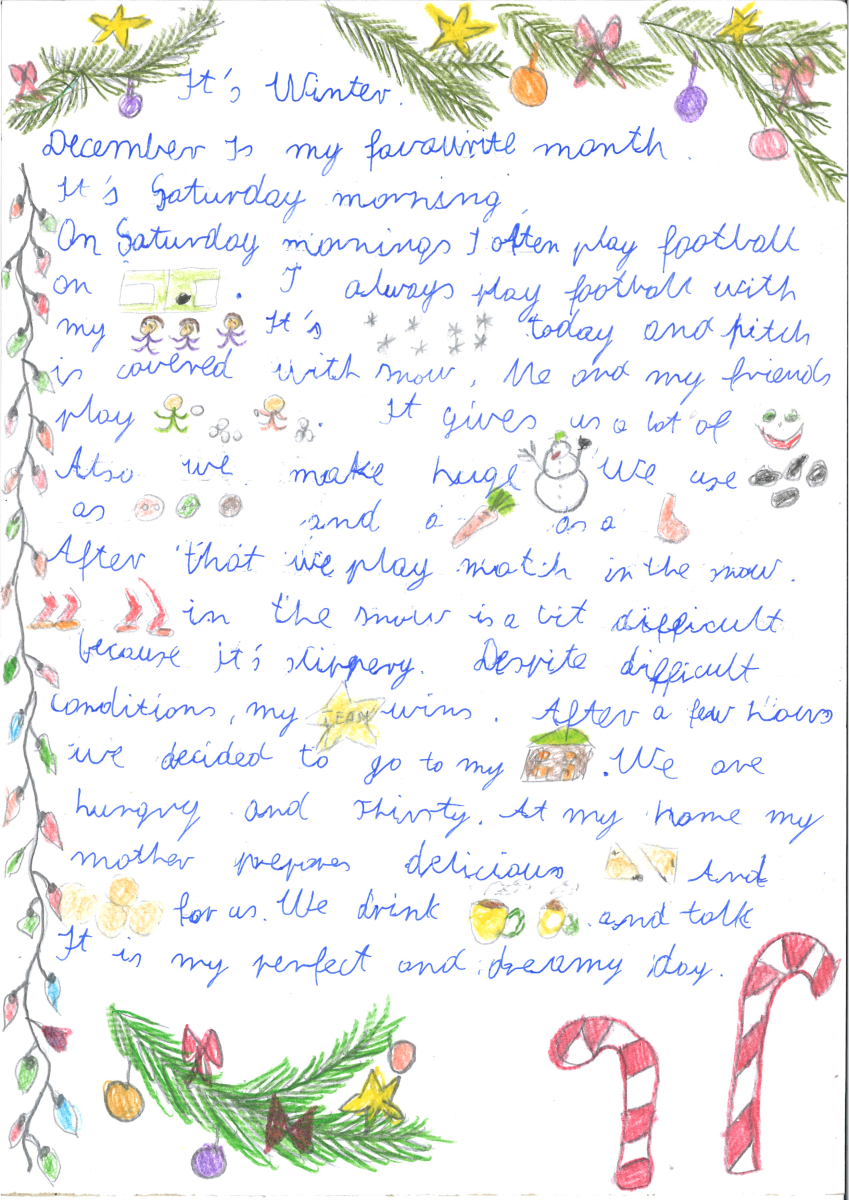 It's Winter.
December Is my favourite month.
It's Saturday morning
On Saturday mornings I often play football
on . I always play football with
my It's today and pitch
is covered with snow, Me and my friends
play . It gives us a lot of
Also we make huge We use
as and a as a
After that we play match in the snow.
in the snow is a bit difficult
because it's slippery. Despite difficult
conditions, my TEAM wins. After a few hours
we decided to go to my . We are
hungry and thirsty. At my home my
mother prepares delicious And
for us. We drink and talk
It is my perfect and dreamy day.